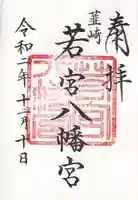 奉拝
韮崎
若宮八幡宮
令和二年十日